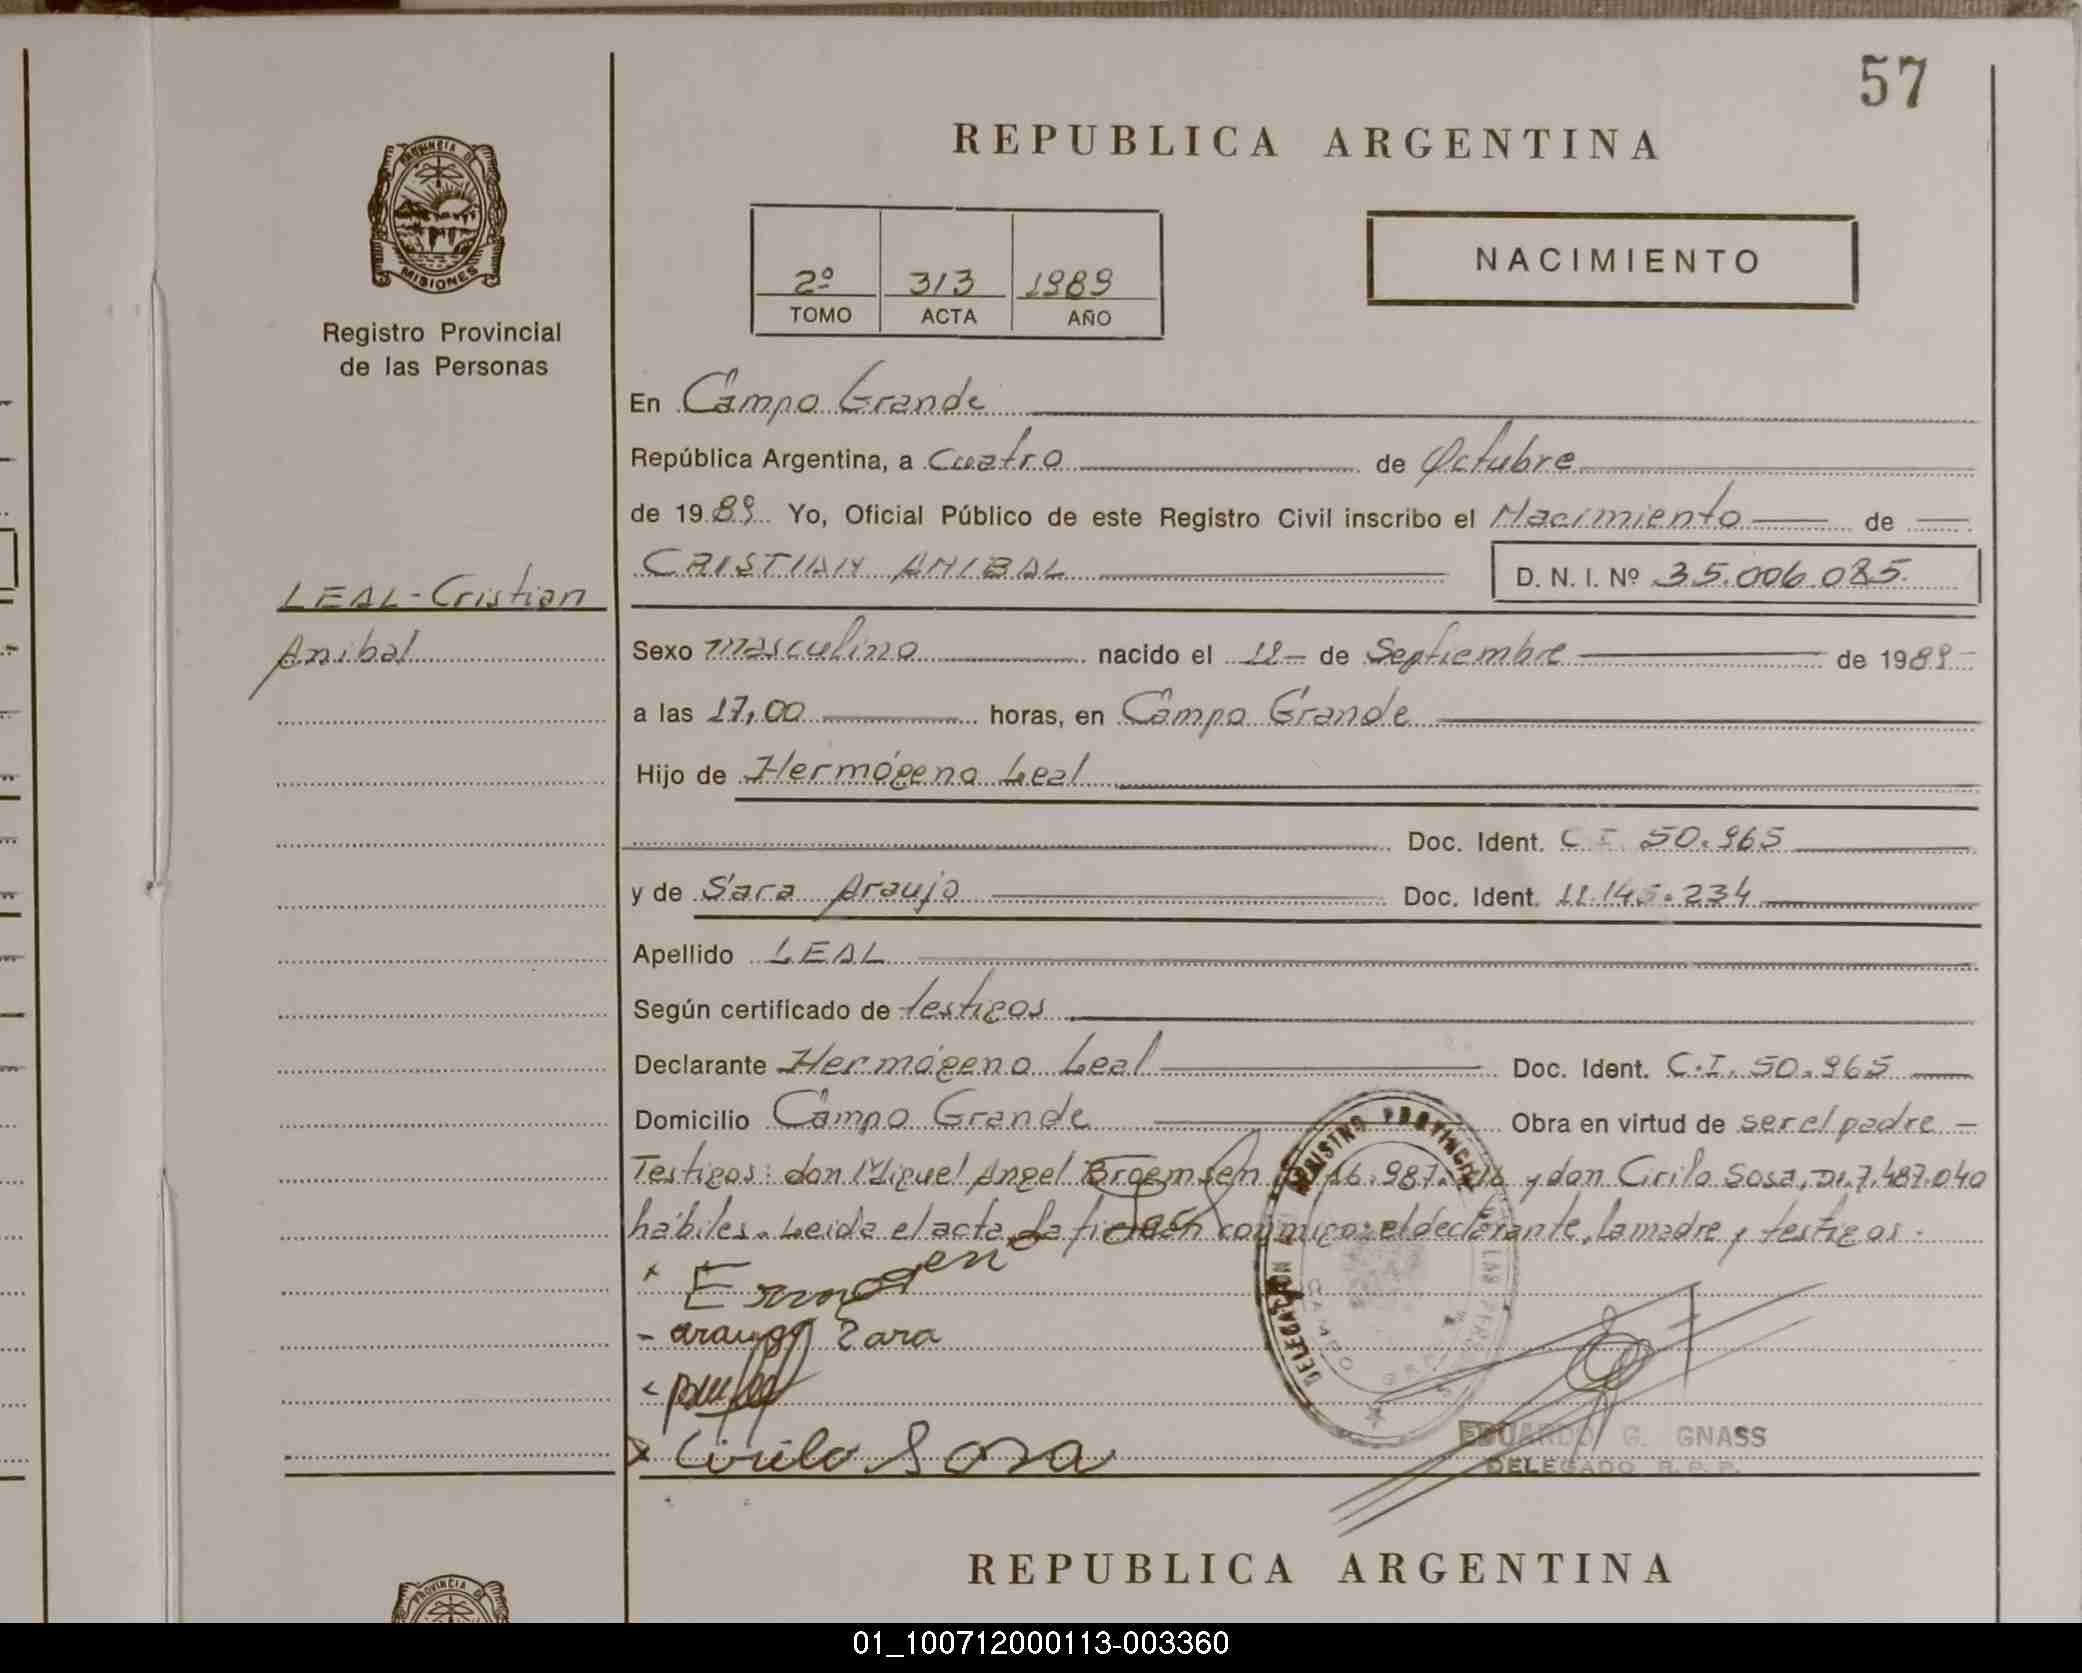 57
REPUBLICA ARGENTINA
PROVINCIA DE
MISIONES
Registro Provincial
de las Personas
2º 313 1989
TOMO ACTA AÑO
NACIMIENTO
En Campo Grande
República Argentina, a Cuatro de Octubre
de 1989 Yo, Oficial Público de este Registro Civil inscribo el Nacimiento de
CRISTIAN ANIBAL D. N. I. Nº 35.006.085
LEAL - Cristian
Anibal
Sexo masculino nacido el de Septiembre de 1989
a las 17,00 horas, en Campo Grande
Hijo de Hermógeno Leal
Doc. Ident. C I. 50.965
y de Sara Araujo Doc. Ident. 11.145.234
Apellido LEAL
Según certificado de testigos
Declarante Hermógeno Leal Doc. Ident. C.I. 50.965
Domicilio Campo Grande Obra en virtud de ser el padre
Testigos: don Miguel Angel Broemsen y don Cirilo Sosa, DI. 7.487.040
hábiles. Leida el acta, la firman conmigo: el declarante, la madre y testigos.
araujo Zara
Cirilo Sosa
DELEGACION
REGISTRO PROVINCIAL
LAS PERS
CAMPO GRANDE
EDUARDO G. GNASS
DELEGADO R. P. P.
REPUBLICA ARGENTINA
PROVINCIA DE
01_100712000113-003360